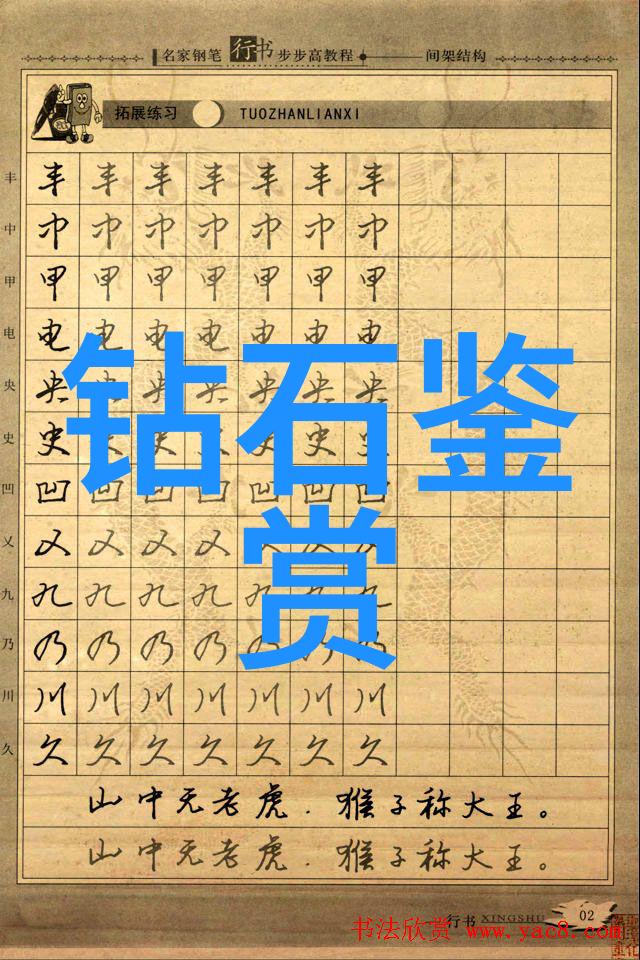 名家钢笔 行书 步步高教程 间架结构
拓展练习 TUOZHANLIANXI
丰 丰 丰 丰 丰 丰 丰 丰
中 中 中 中 中 中 中 中
甲 甲 甲 甲 甲 甲 甲 甲
电 电 电 电 电 电 电 电
央 央 央 央 央 央 央 央
史 史 史 史 史 史 史
凹 凹 凹 凹 凹 凹 凹 凹
义 义 义 义 义
九 九 九 九 九 九 九 九
乃 乃 乃 乃 乃 乃 乃 乃
川 川 川 川 川 川 川 川
久 久 久 久 久 久 久 久
钻石鉴
赏
山中无老虎.猴子称大王。
山中无老虎.猴子称大王。
行书 XINGSHU 02
书法欣赏 www.yac8.com